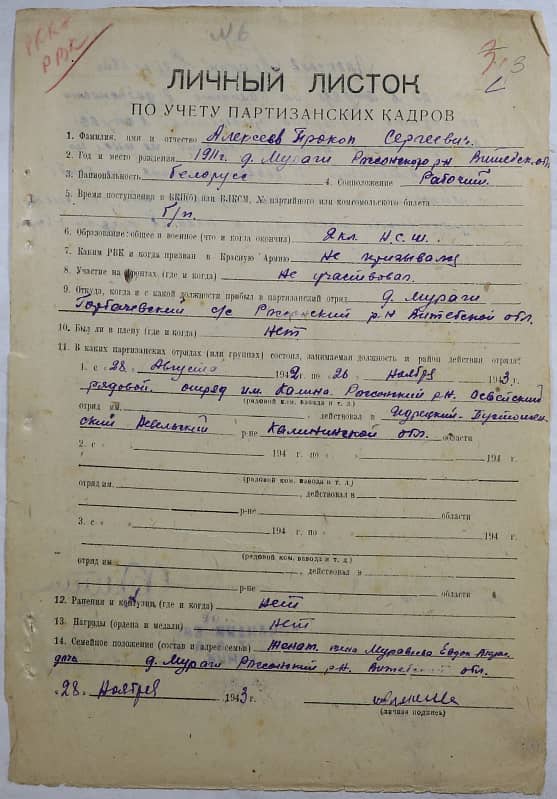 РККА
РВК
№6
3
ЛИЧНЫЙ ЛИСТОК
ПО УЧЕТУ ПАРТИЗАНСКИХ КАДРОВ
1. Фамилия, имя и отчество Алексеев Прокоп Сергеевич.
2. Год и место рождения 1911г. д. Мураги Россонского р-н Витебск. обл.
3. Национальность белорусс 4. Соцположение Рабочий.
5. Время поступления в ВКП(б) или ВЛКСМ, № партийного или комсомольского билета
б/п.
6. Образование: общее и военное (что и когда окончил) 7кл. Н.С.Ш.
7. Каким РВК и когда призван в Красную Армию Не призывался
8. Участие на фронтах, (где и когда) Не участвовал.
9. Откуда, когда и с какой должности прибыл в партизанский отряд д. Мураги
Горбачевский с/с Россонский р-н Витебской обл.
10. Был ли в плену (где и когда) Нет
11. В каких партизанских отрядах (или группах) состоял, занимаемая должность и район действия отряда:
1. с 28. Августа 1942 по 26 Ноября 1943 г.
рядовой. отряд им. Калина. Россонский р-н. Освейский
(рядовой ком. взвода и т. д.)
отряд им. действовал в Идрицкий-Пустошен-
ский Невельский р-не Калининской обл. области
2. с " 194 г. по " 194 г.
(рядовой ком. взвода и т. д.)
отряд им. , действовал в
р-не области
3. с " 194 г. по " 194 г.
(рядовой ком. взвода и т. д.)
отряд им. , действовал в
р-не области
12. Ранения и контузии, (где и когда) нет
13. Награды (ордена и медали) нет
14. Семейное положение (состав и адрес семьи) Женат. жена Муравьева
д. Мураги Россонский р-н. Витебской обл.
"28. Ноября 1943 г.
(личная подпись)